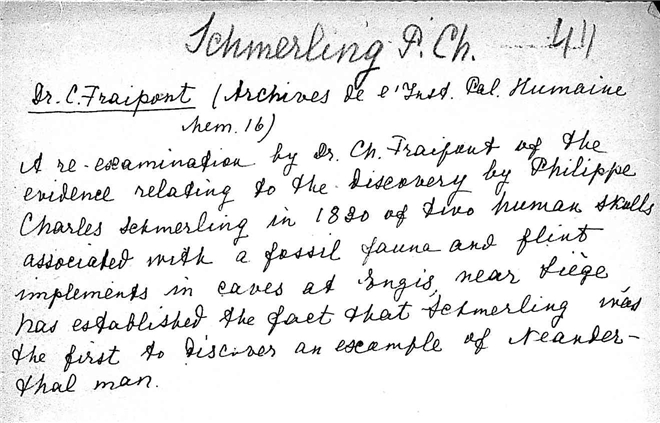 Schmerling P. Ch. 41
Dr. C. Fraipont (Archives de l'Inst. Pal. Humaine
Mem. 16)
A re-examination by Dr. Ch. Fraipont of the
evidence relating to the discovery by Philippe
Charles Schmerling in 1830 of two human skulls
associated with a fossil fauna and flint
implements in caves at Engis, near Liège
has established the fact that Schmerling was
the first to discover an example of Neander-
thal man.